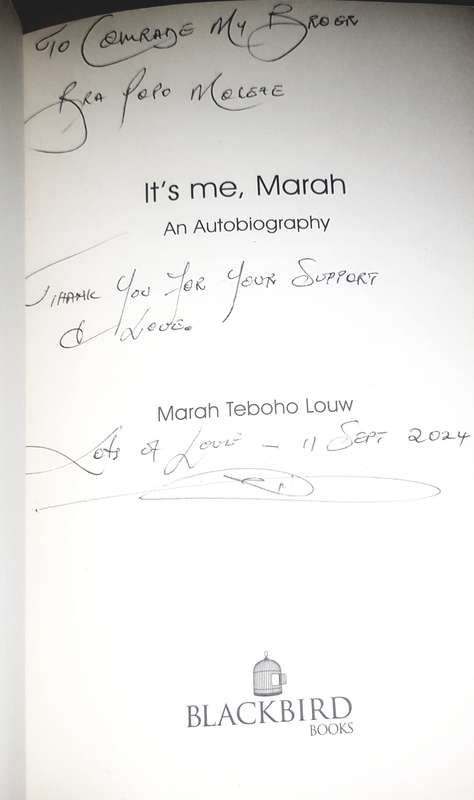 To Comrade My Broer
Bra Popo Molefe
It's me, Marah
An Autobiography
Thank You For Your Support
& Love.
Marah Teboho Louw
Lots of Love - 11 Sept 2024
BLACKBIRD
BOOKS